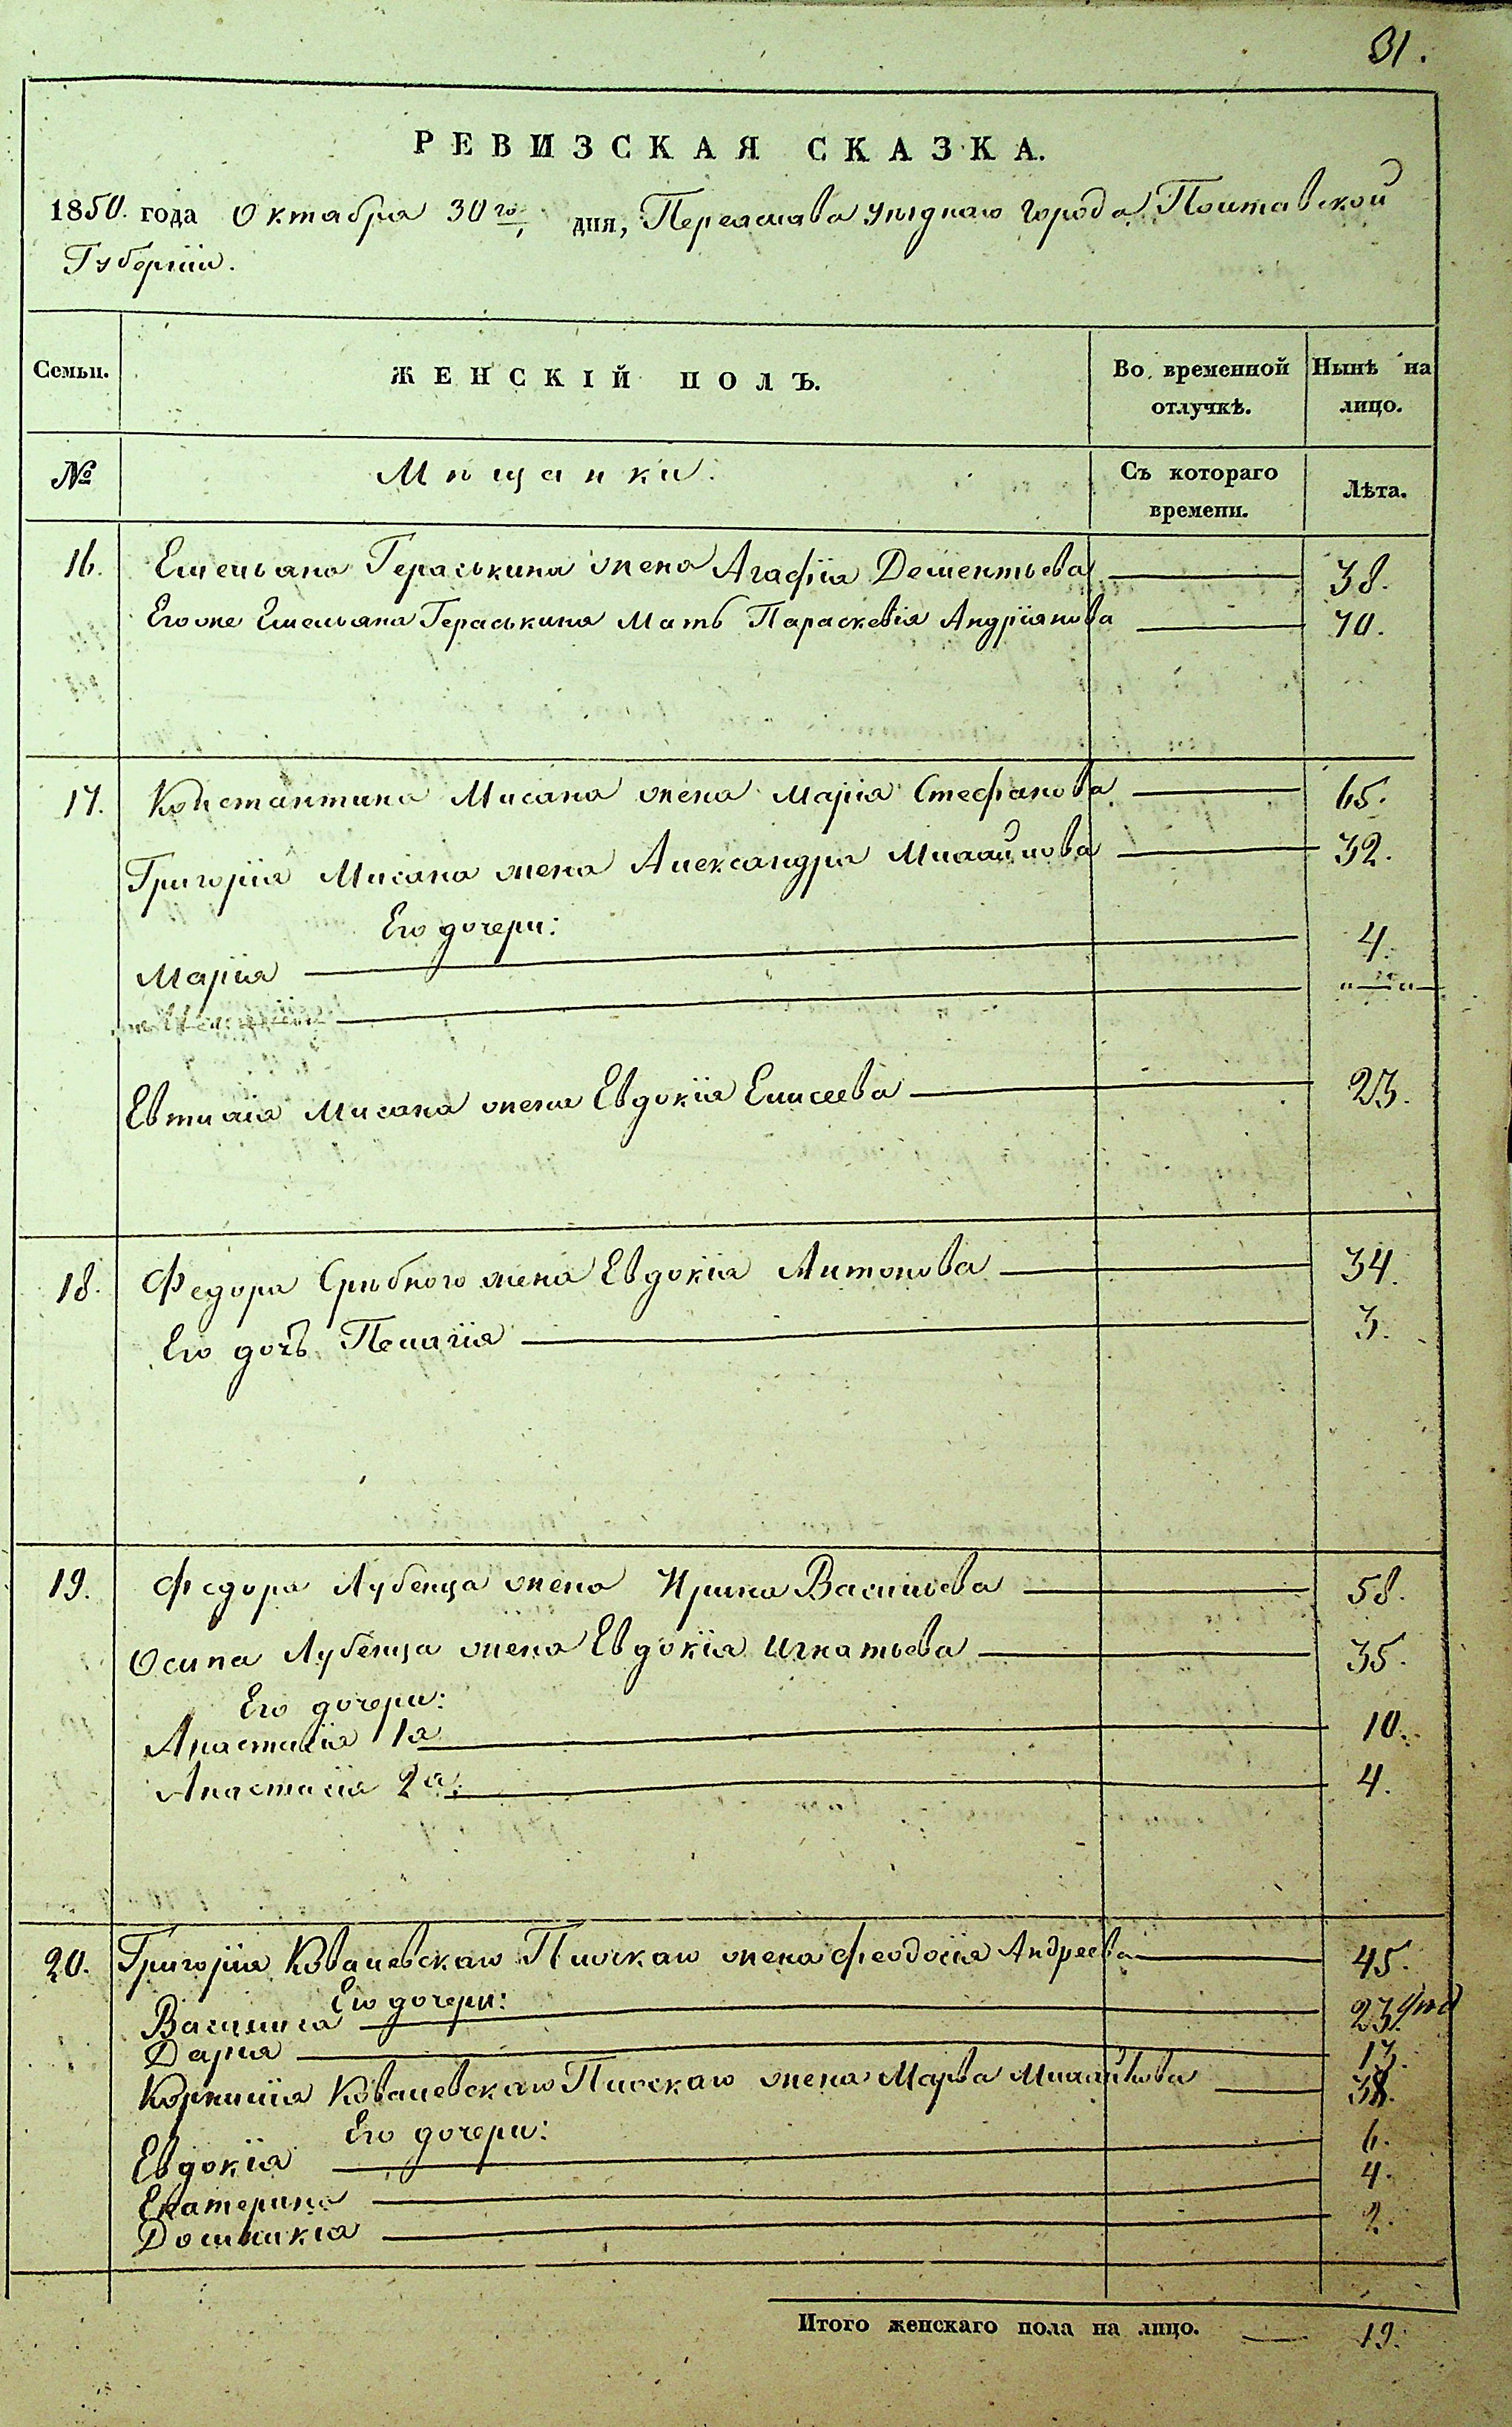 31.
РЕВИЗСКАЯ СКАЗКА.
1850. года Октября 30го дня, Переяслава уѣзднаго города Полтавской
Губерніи.
Семьи. ЖЕНСКІЙ ПОЛЪ. Во временной отлучкѣ. Нынѣ на лицо.
№ Мѣщанки. Съ котораго времени. Лѣта.
16. Емельяна Гераськина жена Агафія Дементьева 38.
Егоже Емельяна Гераськина Мать Параскевія Андріянова 70.
17. Константина Мисана жена Марія Стефанова 65.
Григорія Мисана жена Александра Михайлова 32.
Его дочери:
Марія 4.
Евтихія Мисана жена Евдокія Елисеева 23.
18. Федора Срѣбного жена Евдокія Антонова 34.
Его дочь Пелагія 3.
19. Федора Лубенца жена Ирина Васильева 58.
Осипа Лубенца жена Евдокія Игнатьева 35.
Его дочери:
Анастасія 1я 10.
Анастасія 2я. 4.
20. Григорія Ковалевскаго Пилскаго жена Феодосія Андреева 45.
Его дочери:
Василиса 23.
Дарія 17.
Корнилія Ковалевскаго Пилскаго жена Марѳа Михайлова 38.
Его дочери:
Евдокія 6.
Екатерина 4.
Домникія 2.
Итого женскаго пола на лицо. 19.